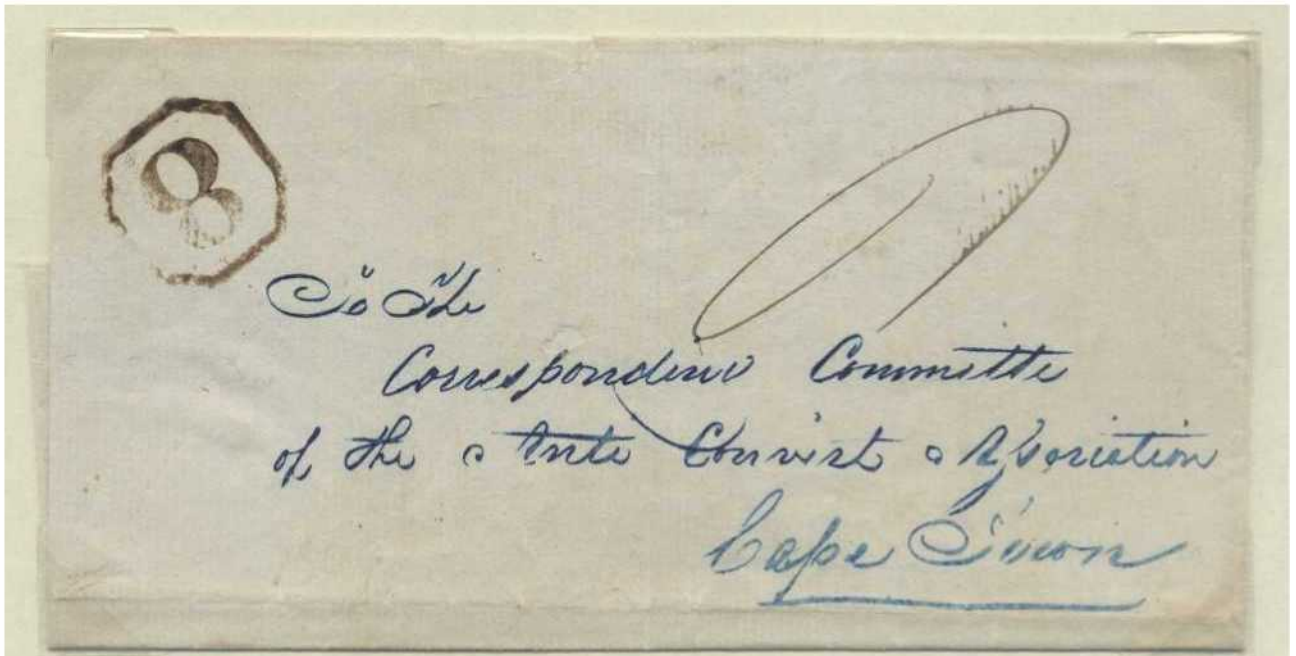 8
To The
Corresponding Committe
of the Ante Convict Association
Cape Town